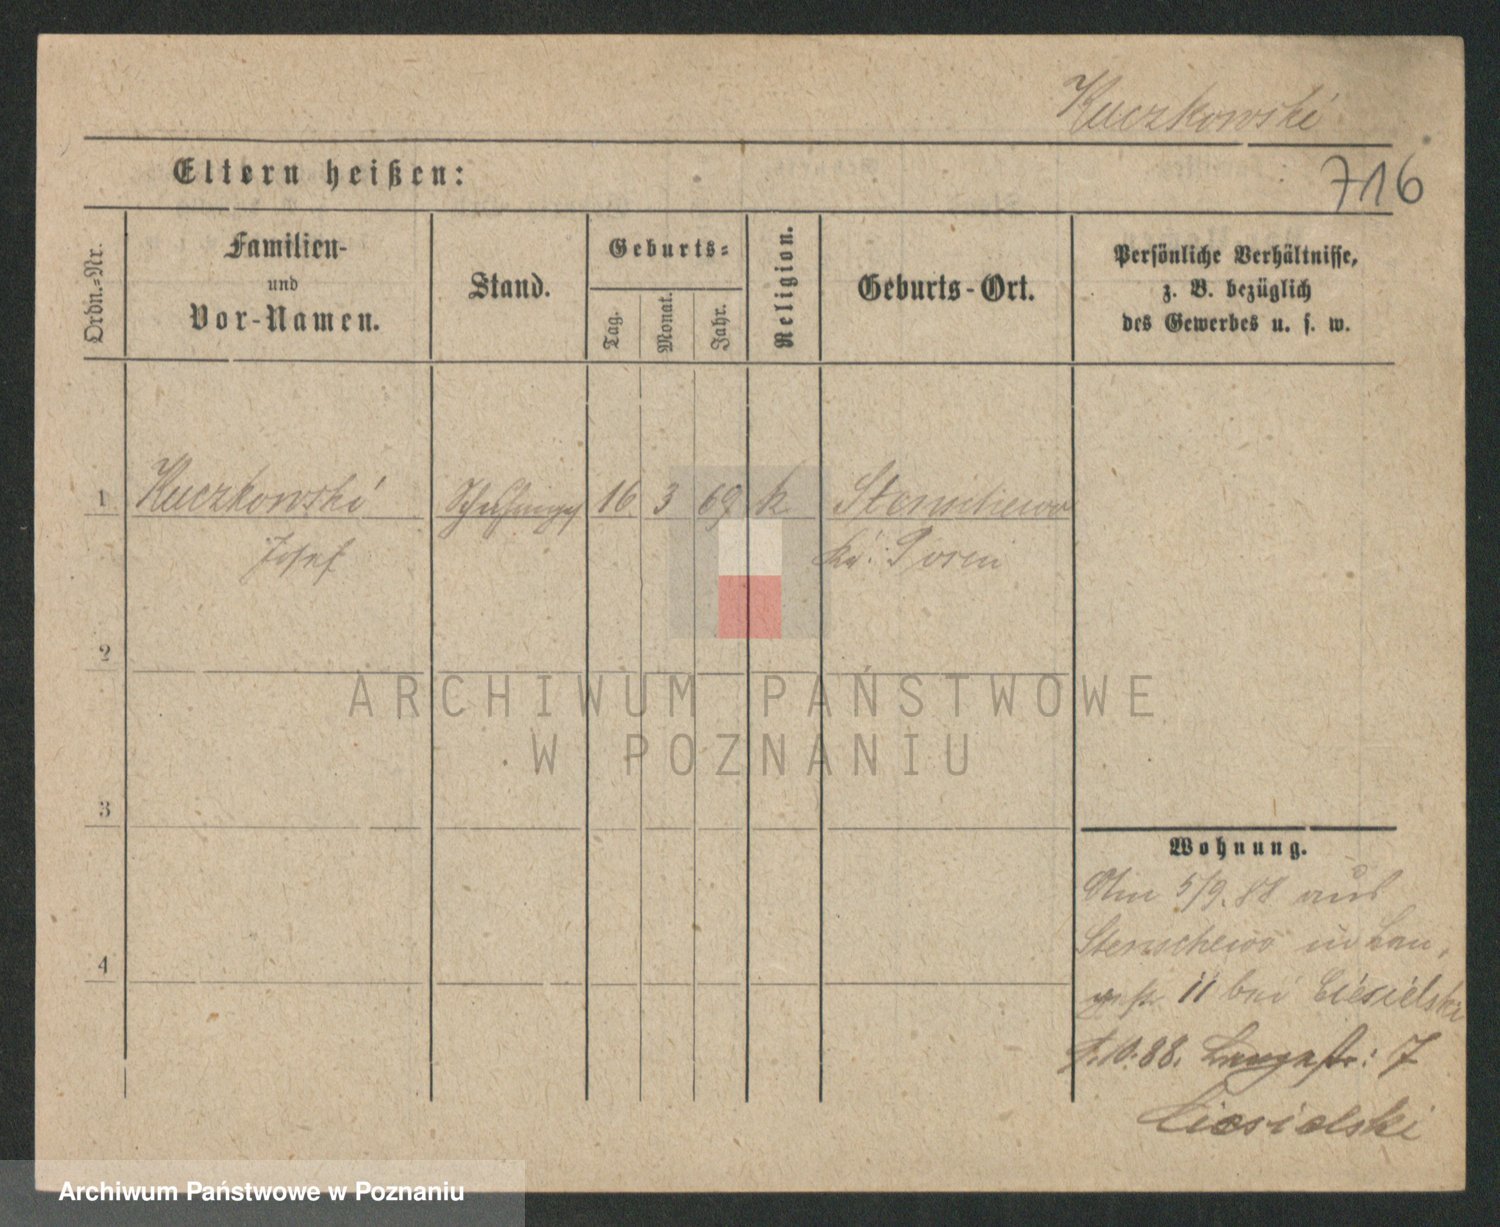 Kuczkowski
716
Eltern heißen:
Ordn.-Nr.
Familien-
und
Vor-Namen.
Stand.
Geburts-
Tag.
Monat.
Jahr.
Religion.
Geburts-Ort.
Persönliche Verhältnisse,
z. B. bezüglich
des Gewerbes u. s. w.
1 Kuczkowski 16 3 69 k. Stenschewo
Josef Kr. Posen
2
3
4
Wohnung.
Am 5/9. 88 aus
Stenschewo in Lan-
gestr. 11 bei Ciesielski
1.10.88. Langestr: 7
Ciesielski
ARCHIWUM PAŃSTWOWE
W POZNANIU
Archiwum Państwowe w Poznaniu